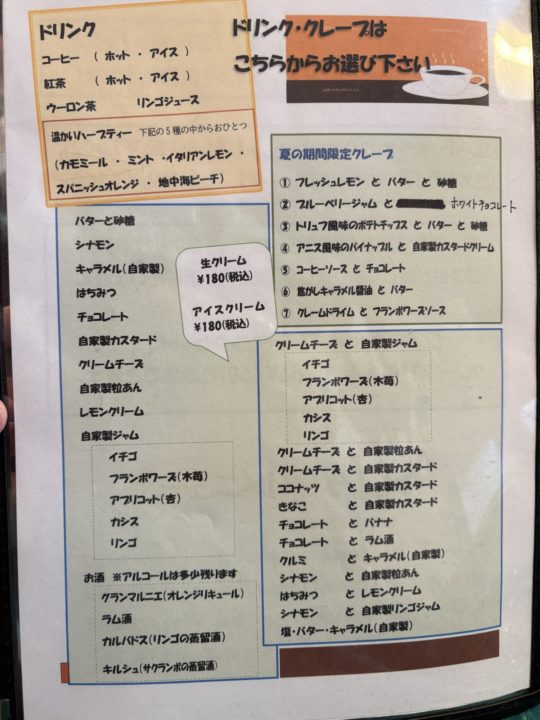 ドリンク
コーヒー （ ホット ・ アイス ）
紅茶 （ ホット ・ アイス ）
ウーロン茶 リンゴジュース
温かいハーブティー 下記の５種の中からおひとつ
（カモミール ・ ミント ・イタリアンレモン・
スパニッシュオレンジ ・ 地中海ピーチ）
ドリンク・クレープは
こちらからお選び下さい
夏の期間限定クレープ
① フレッシュレモン と バター と 砂糖
② ブルーベリージャム と ホワイトチョコレート
③ トリュフ風味のポテトチップス と バター と 砂糖
④ アニス風味のパイナップル と 自家製カスタードクリーム
⑤ コーヒーソース と チョコレート
⑥ 焦がしキャラメル醤油 と バター
⑦ クレームドライム と フランボワーズソース
バターと砂糖
シナモン
キャラメル（自家製）
はちみつ
チョコレート
自家製カスタード
クリームチーズ
自家製粒あん
レモンクリーム
自家製ジャム
イチゴ
フランボワーズ（木苺）
アプリコット（杏）
カシス
リンゴ
お酒 ※アルコールは多少残ります
グランマルニエ（オレンジリキュール）
ラム酒
カルバドス（リンゴの蒸留酒）
キルシュ（サクランボの蒸留酒）
生クリーム
¥180（税込）
アイスクリーム
¥180（税込）
クリームチーズ と 自家製ジャム
イチゴ
フランボワーズ（木苺）
アプリコット（杏）
カシス
リンゴ
クリームチーズ と 自家製粒あん
クリームチーズ と 自家製カスタード
ココナッツ と 自家製カスタード
きなこ と 自家製カスタード
チョコレート と バナナ
チョコレート と ラム酒
クルミ と キャラメル（自家製）
シナモン と 自家製粒あん
はちみつ と レモンクリーム
シナモン と 自家製リンゴジャム
塩・バター・キャラメル（自家製）